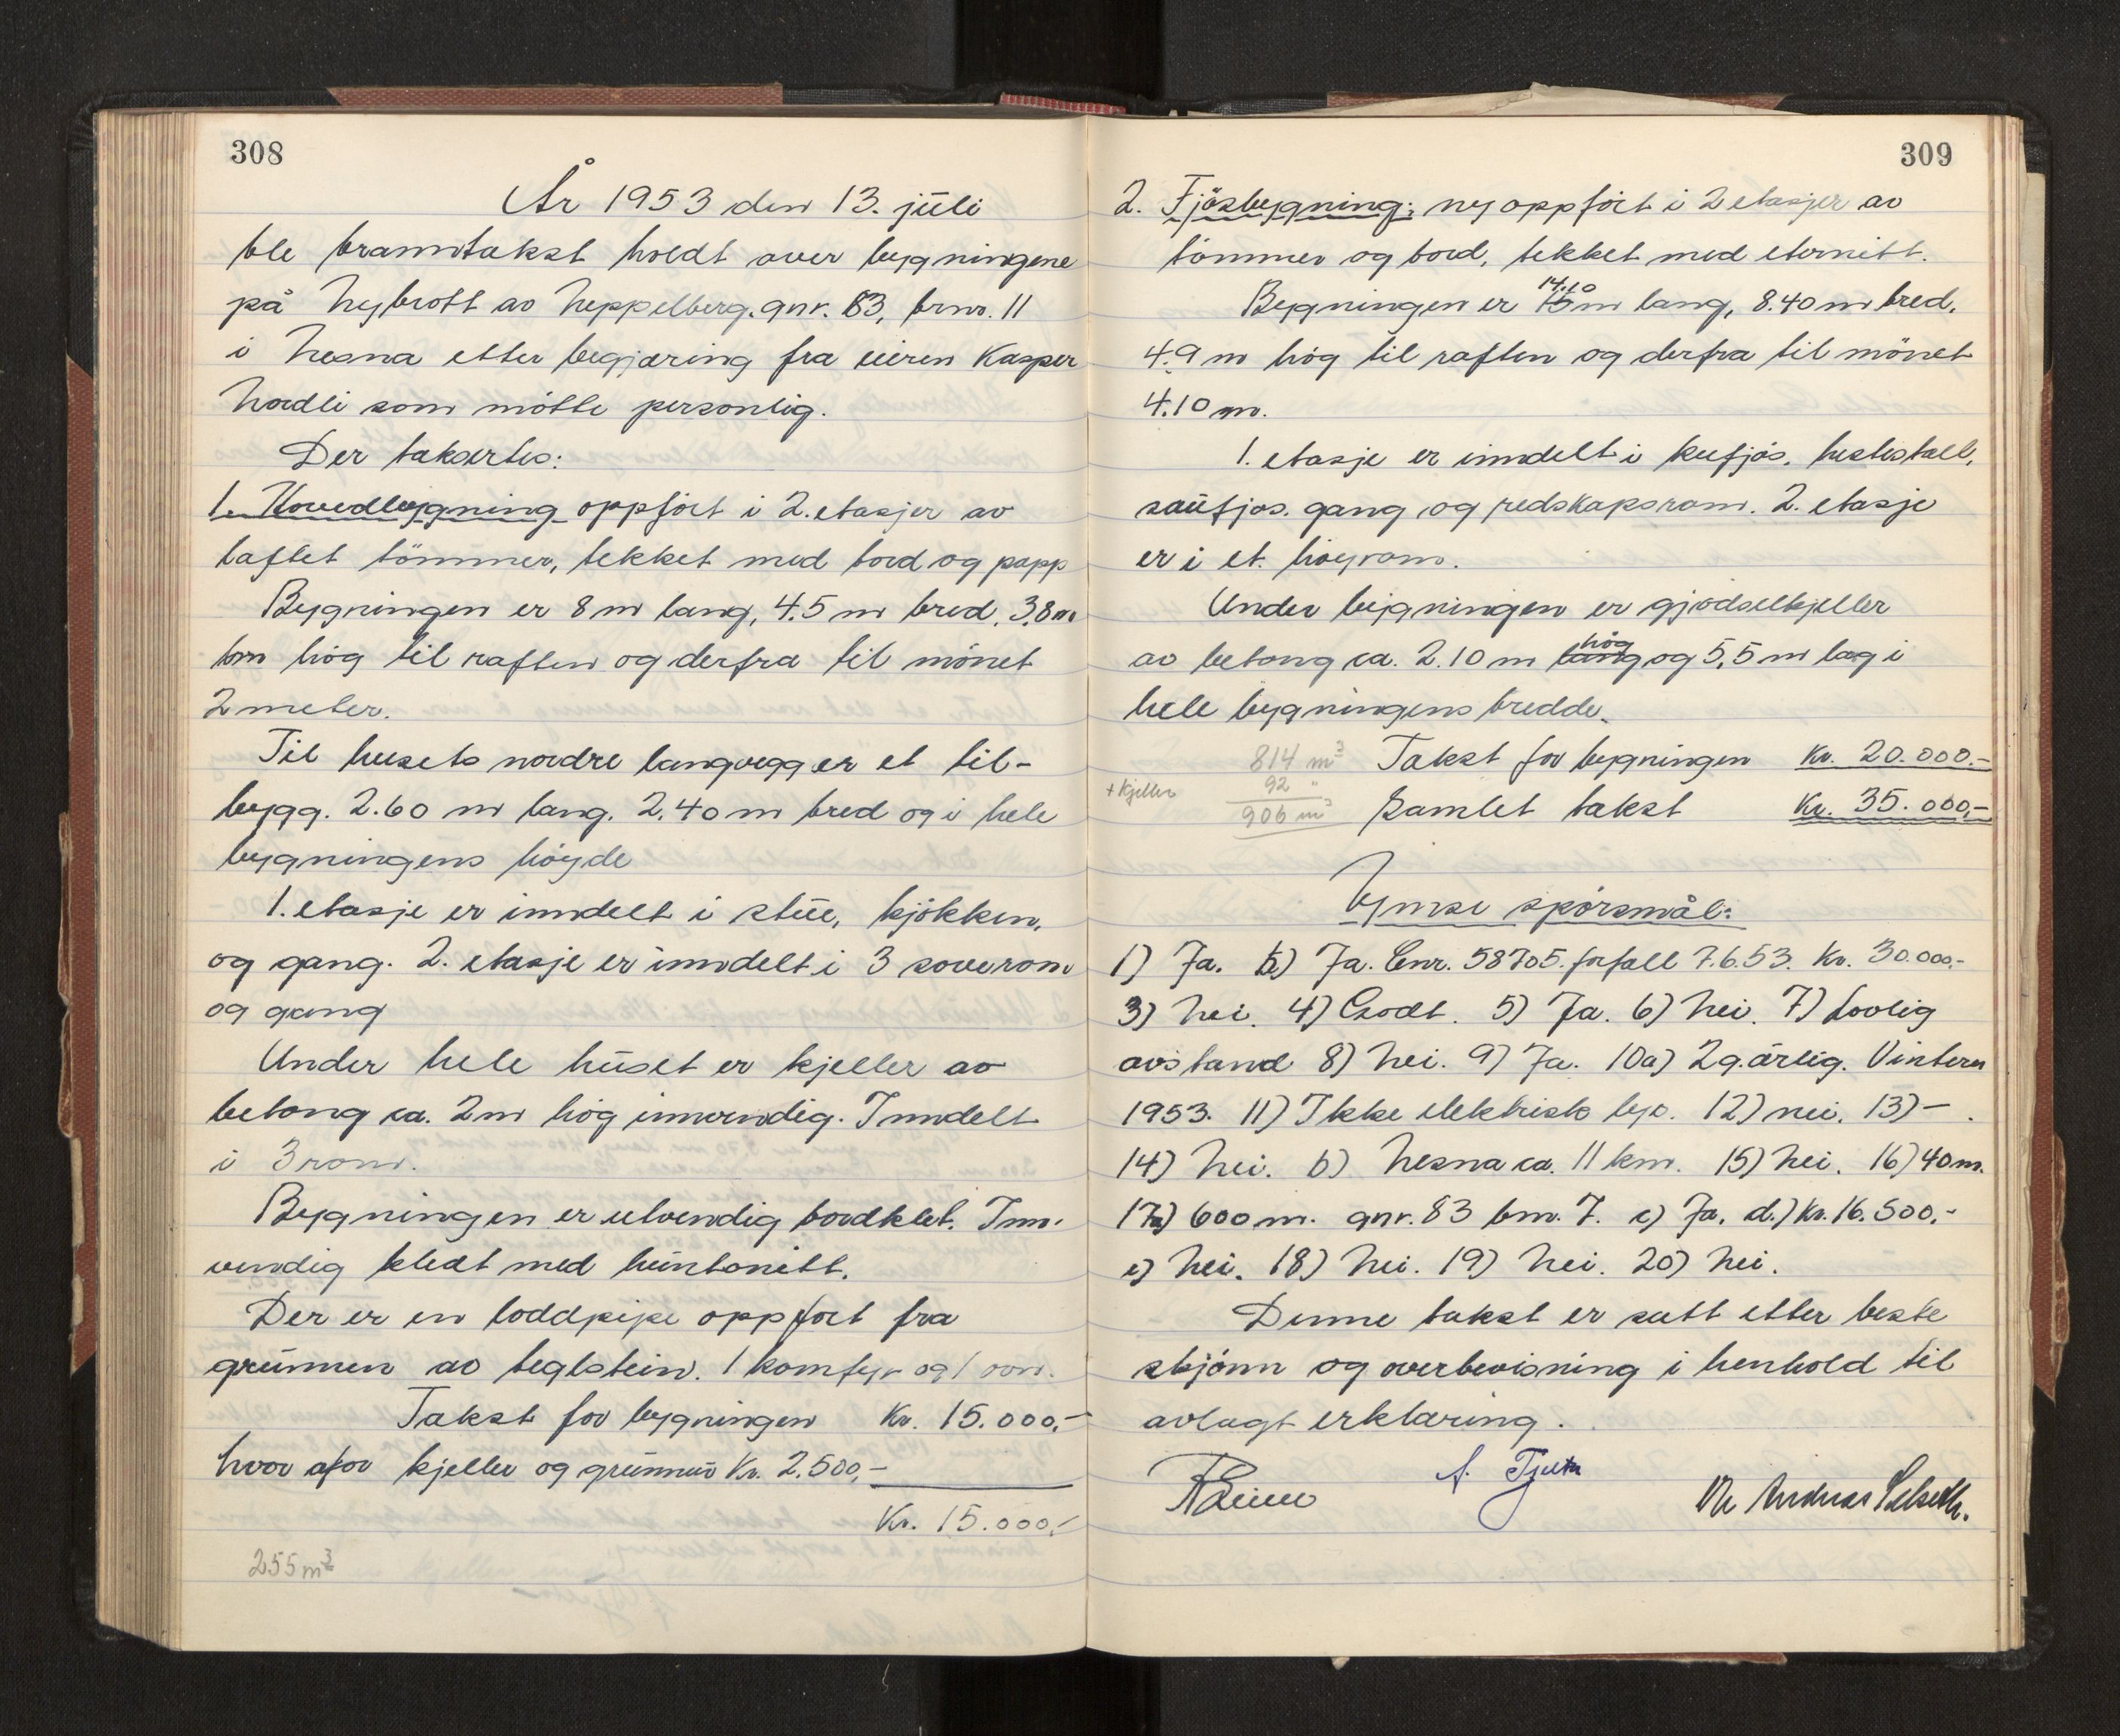 308
År 1953 den 13. juli
ble branntakst holdt over bygningene
på Nybrott av Neppelberg. gnr. 83, brnr. 11
i Nesna etter begjæring fra eieren Kasper
Nordli som møtte personlig.
Der taksertes:
1. Hovedbygning oppført i 2. etasjer av
laftet tømmer, tekket med bord og papp
Bygningen er 8 m lang, 4.5 m bred, 3.8 m
høg til raften og derfra til mønet
2 meter.
Til husets nordre langvegg er et til-
bygg. 2.60 m lang. 2.40 m bred og i hele
bygningens høyde
1. etasje er inndelt i stue, kjøkken,
og gang. 2. etasje er inndelt i 3 soverom
og gang
Under hele huset er kjeller av
betong ca. 2m høg innvendig. Inndelt
i 3 rom.
Bygningen er utvendig bordkled. Inn-
vendig kledt med huntonitt.
Der er en loddpipe oppført fra
grunnen av teglstein. 1 komfyr og 1 ovn.
Takst for bygningen Kr. 15.000,-
hvor afor kjeller og grunnmur Kr. 2.500,-
Kr. 15.000,-
255 m3
309
2. Fjøsbygning; ny oppført i 2 etasjer av
tømmer og bord, tekket med eternitt.
14.10
Bygningen er 15 m lang, 8.40 m bred,
4.9 m høg til raften og derfra til mønet
4.10 m.
1. etasje er inndelt i kufjøs, hestestall,
saufjøs. gang og redskapsrom. 2. etasje
er i et høyrom.
Under bygningen er gjødselkjeller
høg
av betong ca. 2.10 m lang og 5,5 m lag i
hele bygningens bredde.
814 m3 Takst for bygningen Kr. 20.000.-
+ kjeller 92 "
906 m3 Samlet takst Kr. 35.000,-
Ymse spørsmål:
1) Ja. 2) Ja. Enr. 58705. forfall 7.6.53. Kr. 30.000,-
3) Nei. 4) Godt. 5) Ja. 6) Nei. 7) Lovlig
avstand 8) Nei. 9) Ja. 10a) 2 g. årlig. Vinteren
1953. 11) Ikke elektrisk lys. 12) nei. 13) - .
14) Nei. b) Nesna ca. 11 km. 15) Nei. 16) 40 m.
17a) 600 m. gnr. 83 bnr. 7. c) Ja. d.) Kr. 16.500,-
e) Nei. 18) Nei. 19) Nei. 20) Nei.
Denne takst er satt etter beste
skjønn og overbevisning i henhold til
avlagt erklæring.
Andreas